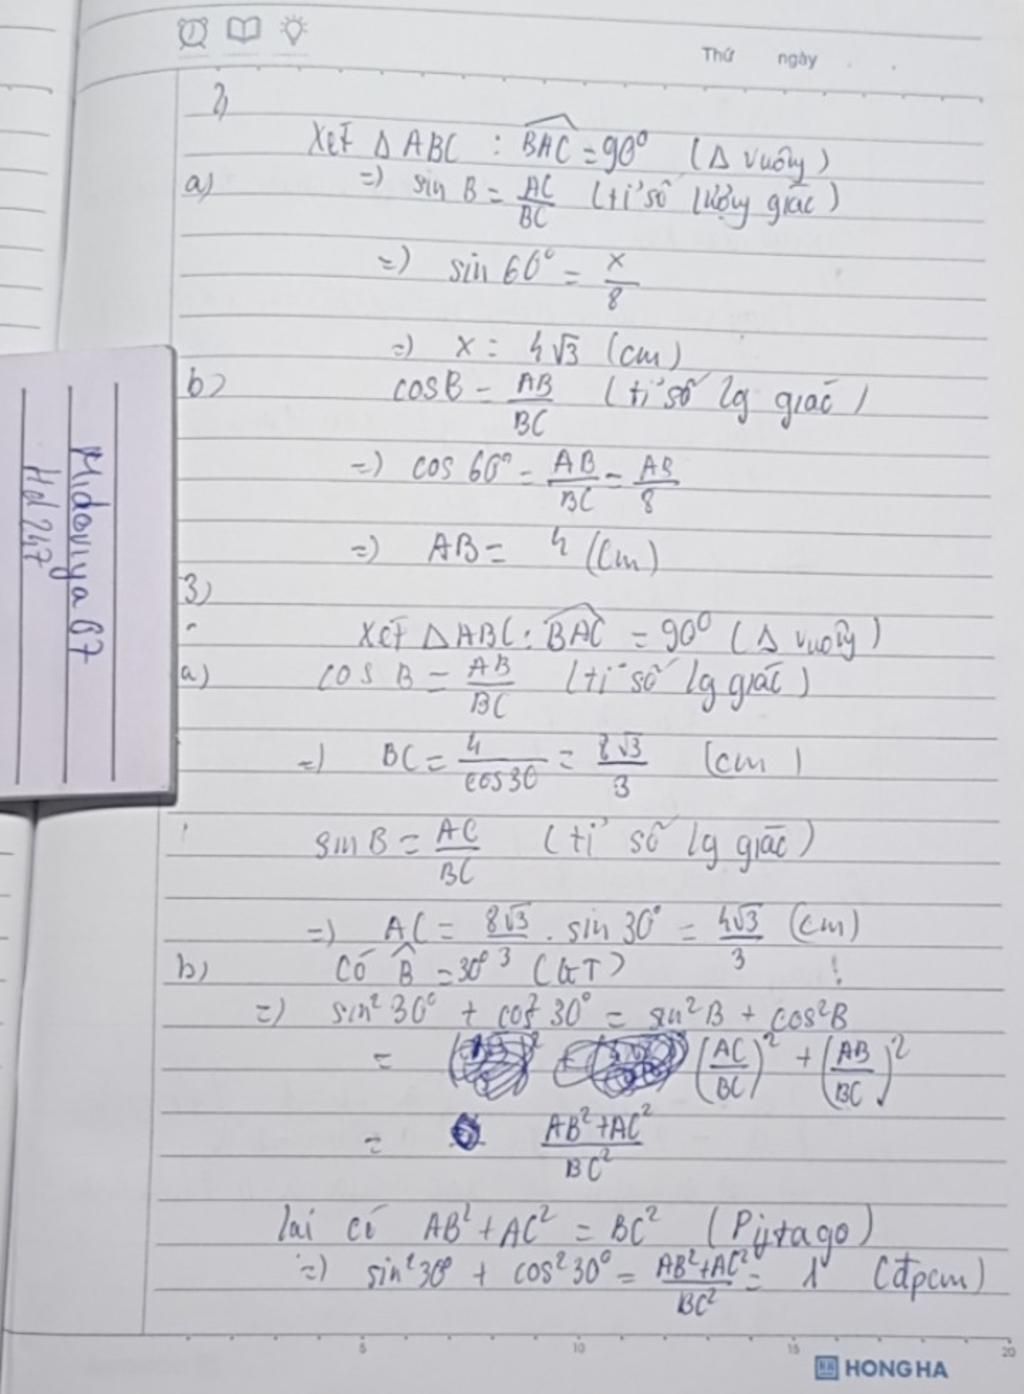 Thứ ngày
2)
Xét Δ ABC : BAC = 90° (Δ vuông)
a) => sin B = AC/BC (tỉ số lượng giác)
=> sin 60° = x/8
=> x = 4√3 (cm)
b) cosB = AB/BC (tỉ số lg giác)
=> cos 60° = AB/BC = AB/8
=> AB = 4 (cm)
3)
Xét Δ ABC : BAC = 90° (Δ vuông)
a) cos B = AB/BC (tỉ số lg giác)
=> BC = 4/cos30 = 8√3/3 (cm)
sinB = AC/BC (tỉ số lg giác)
=> AC = 8√3/3 . sin 30° = 4√3/3 (cm)
b) Có B = 30° (GT)
=> sin² 30° + cos² 30° = sin²B + cos²B
= (AC/BC)² + (AB/BC)²
= AB²+AC²/BC²
lại có AB² + AC² = BC² (Pytago)
=> sin²30° + cos²30° = AB²+AC²/BC² = 1 (đpcm)
Midoriya07
Hd247
5 10 15 20
HONG HA